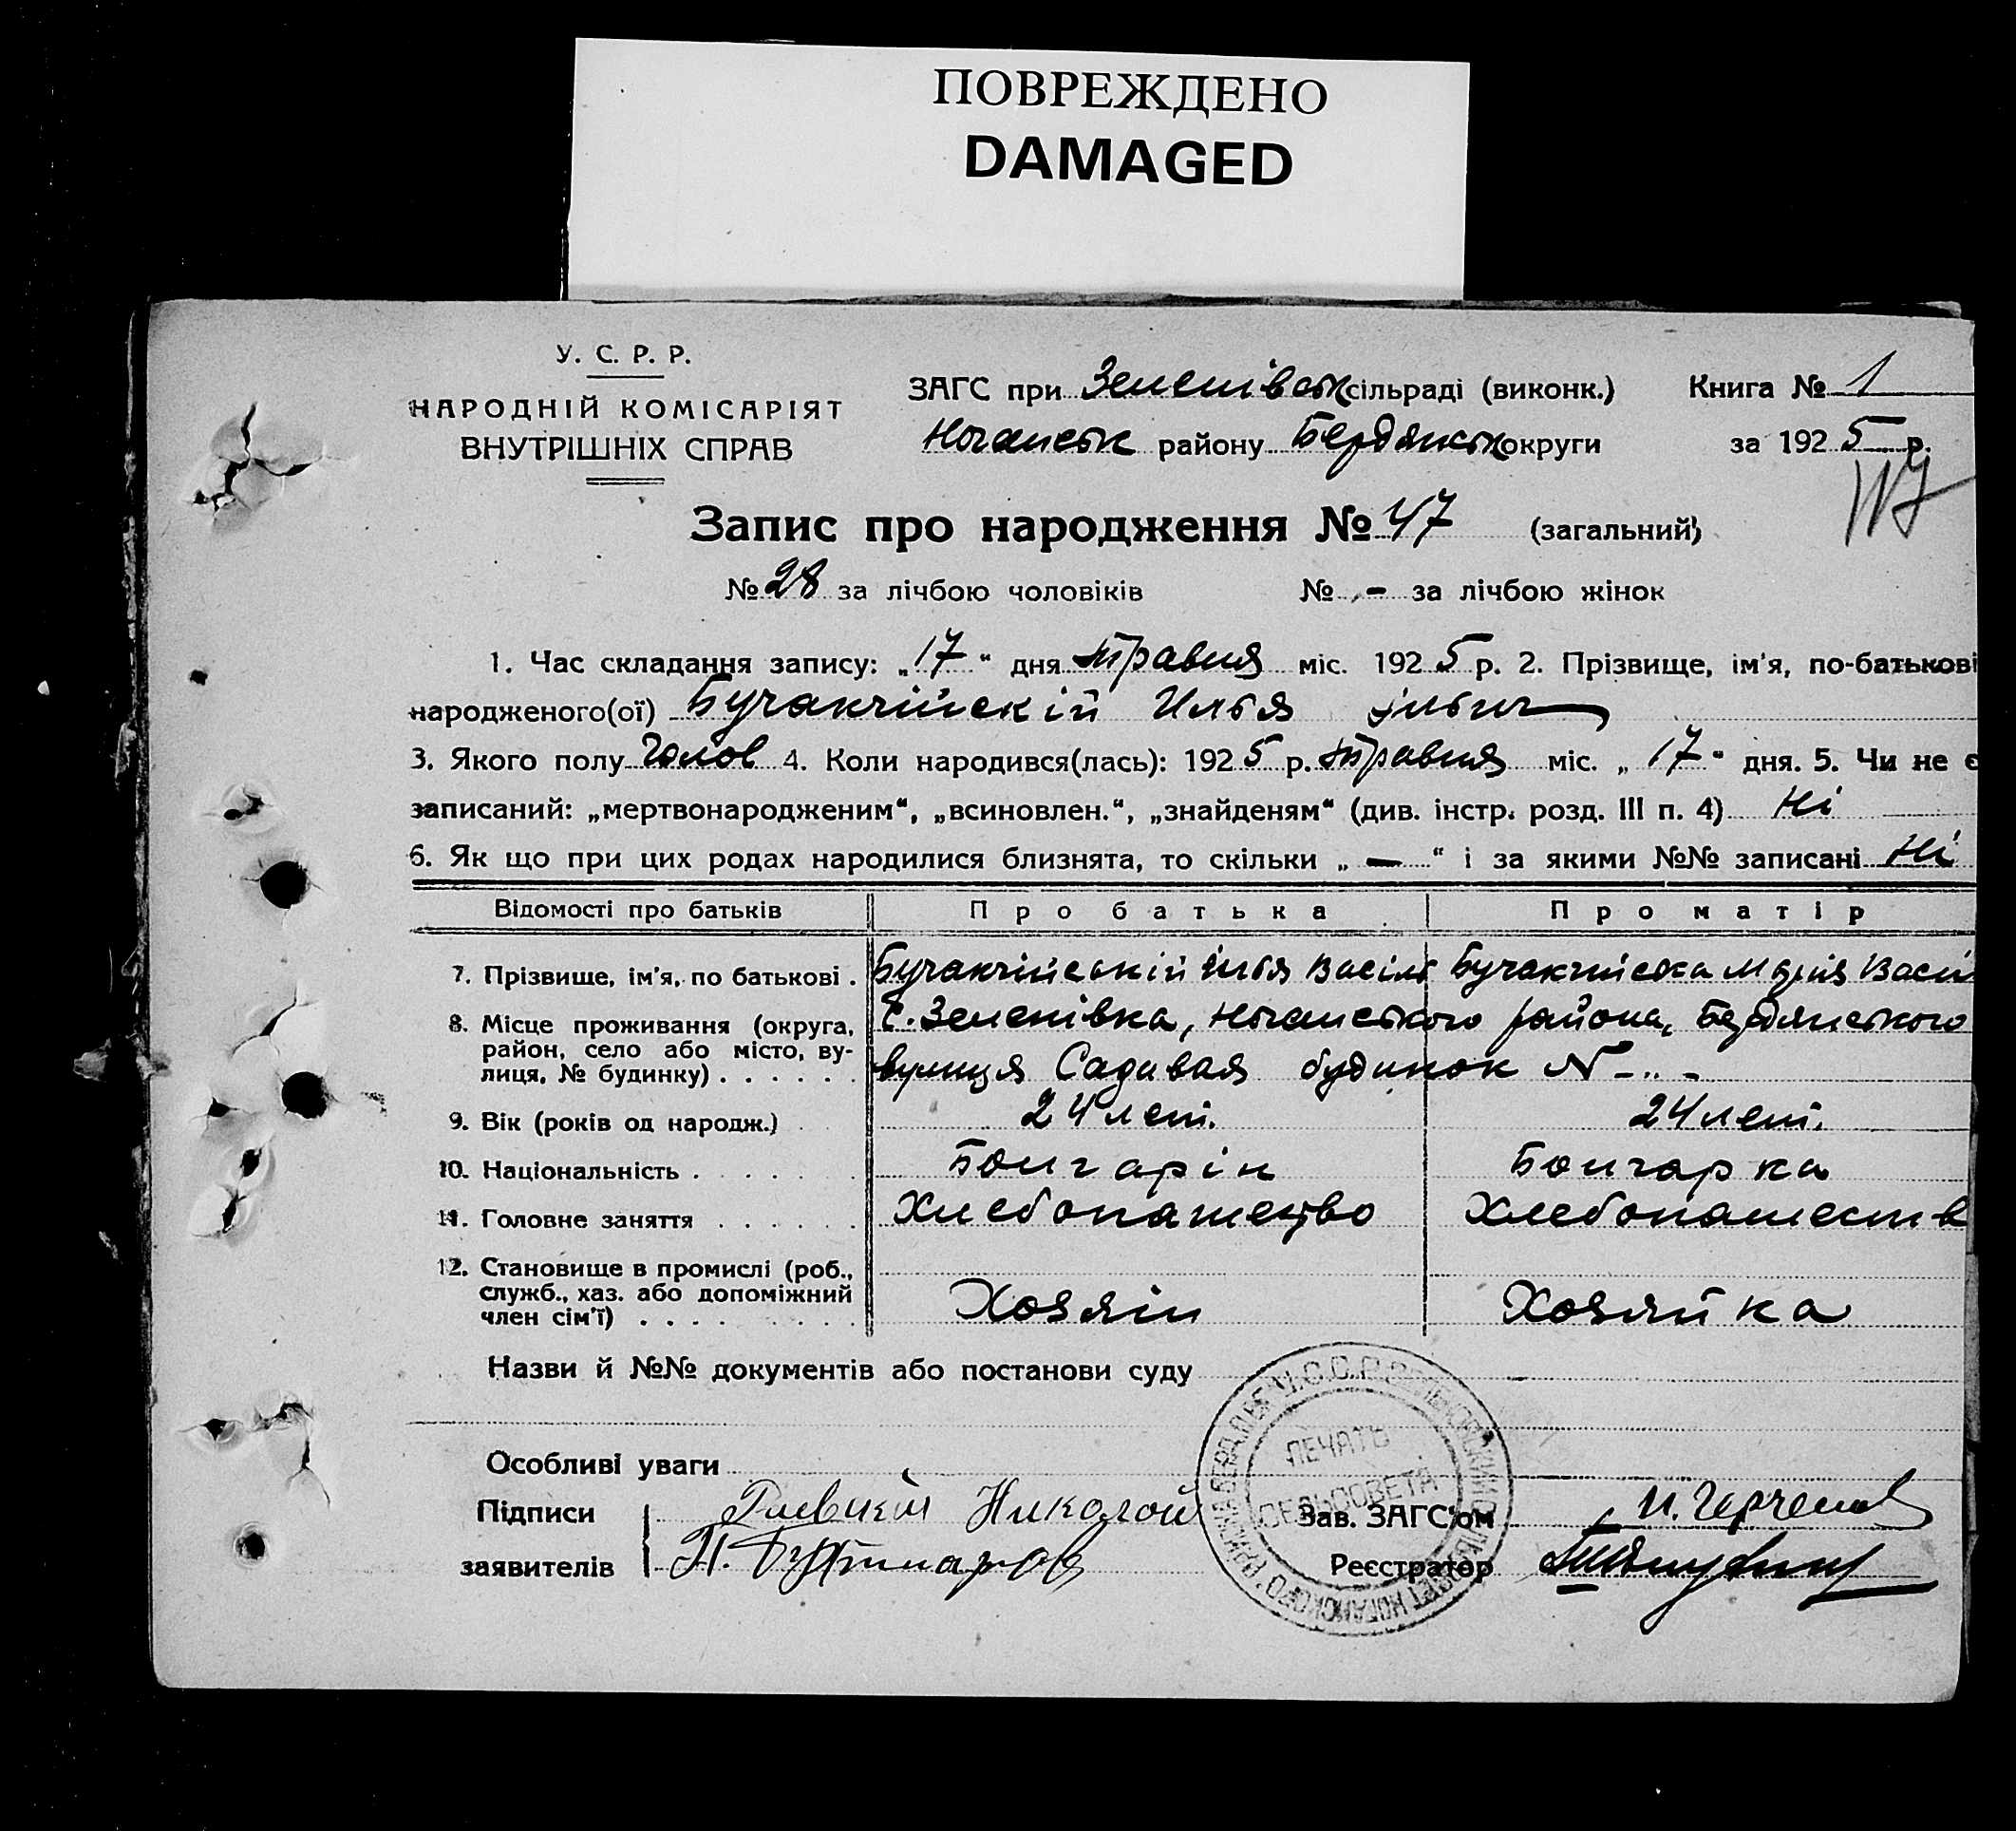 ПОВРЕЖДЕНО
DAMAGED
У. С. Р. Р.
НАРОДНІЙ КОМІСАРІЯТ
ВНУТРІШНІХ СПРАВ
ЗАГС при Зеленівськ сільраді (виконк.) Книга № 1
Ногайськ району Бердянськ округи за 1925 р.
117
Запис про народження № 47 (загальний)
№ 28 за лічбою чоловіків № - за лічбою жінок
1. Час складання запису: „17“ дня травня міс. 1925 р. 2. Прізвище, ім'я, по-батькові
народженого(ої) Бучакчійскій Илья ільич
3. Якого полу Чолов 4. Коли народився(лась): 1925 р. травня міс. „17“ дня. 5. Чи не є
записаний: „мертвонародженим“, „всиновлен.“, „знайденям“ (див. інстр. розд. III п. 4) Ні
6. Як що при цих родах народилися близнята, то скільки „—“ і за якими №№ записані Ні
Відомості про батьків Про батька Про матір
7. Прізвище, ім'я, по батькові . Бучакчійській Ілья Васіль Бучакчийска Марія Васи
8. Місце проживання (округа, район, село або місто, вулиця, № будинку) . . . . . . с. Зеленівка, Ногайського района, Бердянського
вулиця Садивая будинок N - .. -
9. Вік (років од народж.) 24 лет. 24 лет.
10. Національність . . . . . . Болгарін Болгарка
11. Головне заняття . . . . . . Хлебопашество Хлебопашеств
12. Становище в промислі (роб., служб., хаз. або допоміжний член сім'ї) . . . . . . . . Хозяін Хозяйка
Назви й №№ документів або постанови суду
Особливі уваги
Підписи Николай Зав. ЗАГС'ом
заявителів Реєстратор
ПЕЧАТЬ
СЕЛЬСОВЕТА